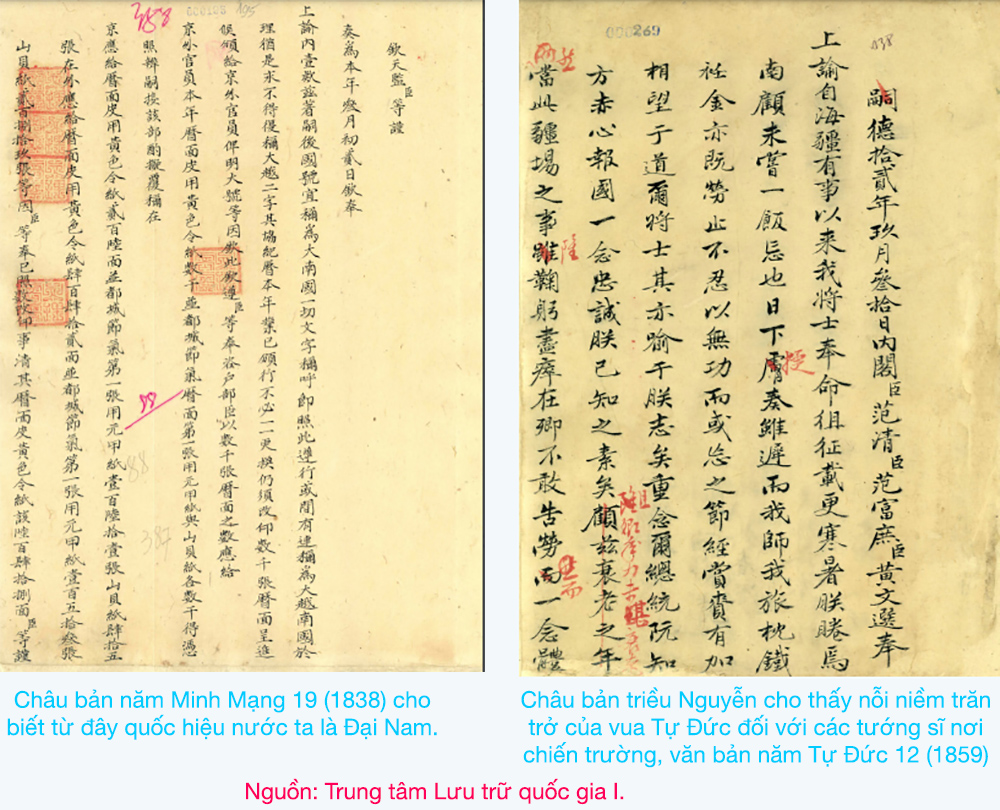 000108 195
358
欽天監臣等謹
奏為本年叄月初貳日欽奉
上諭內壹款茲著嗣後國號宜稱為大南國一切文字稱呼即照此遵行或間有連稱為大越南國於
理猶是求不得復稱大越二字其協紀曆本年業已頒行不必一一更換仍須改印數千張曆面呈進
候頒給京外官員俾明大號等因欽此欽遵臣等奉咨戶部臣以數千張曆面之數應給
京外官員本年曆面皮用黃色令紙數千並都城節氣曆面第一張用元甲紙與山貝紙各數千得憑
照辨嗣接該部酌撥覆稱在
京應給曆面皮用黃色令紙貳百陸面並都城節氣第一張用元甲紙壹百陸拾壹張山貝紙肆拾五
張在外應給曆面皮用黃色令紙肆百肆拾貳面並都城節氣第一張用元甲紙壹百五拾叄張
山貝紙貳百捌拾玖張等因臣等奉已照數改印事清其曆面皮黃色令紙該陸百肆拾捌面臣等謹
88
387
000269
嗣德拾貳年玖月叄拾日內閣臣范清臣范富庶臣黃文選奉
上諭自海疆有事以來我將士奉命徂征載更寒暑朕睠焉
南顧未嘗一飯忘也日下膚奏雖遲而我師我旅枕鐵
衽金亦既勞止不忍以無功而或忽之節經賞賚有加
相望于道爾將士其亦喻于朕志矣重念爾總統阮知
方赤心報國一念忠誠朕已知之素矣顧茲衰老之年
當此疆場之事雖鞠躬盡瘁在卿不敢告勞而一念體
Châu bản năm Minh Mạng 19 (1838) cho
biết từ đây quốc hiệu nước ta là Đại Nam.
Châu bản triều Nguyễn cho thấy nỗi niềm trăn
trở của vua Tự Đức đối với các tướng sĩ nơi
chiến trường, văn bản năm Tự Đức 12 (1859)
Nguồn: Trung tâm Lưu trữ quốc gia I.